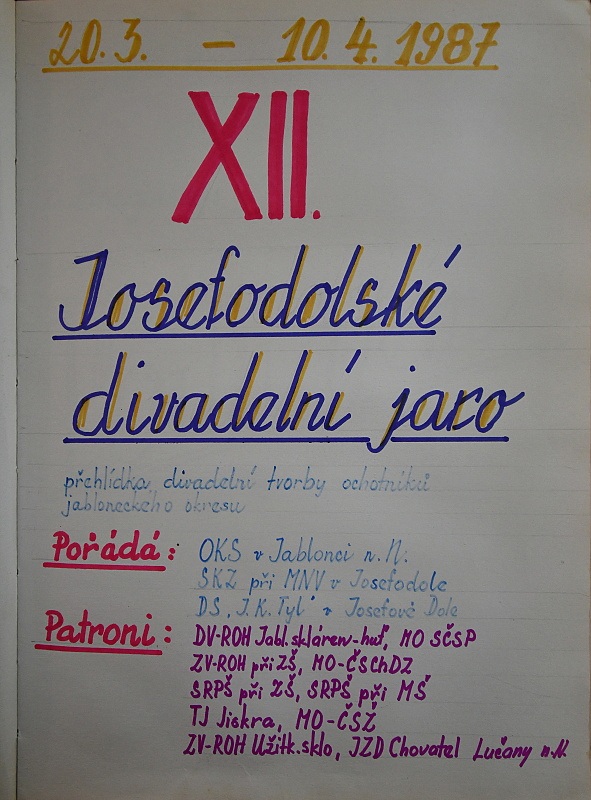 20.3. - 10.4.1987
XII.
Josefodolské
divadelní jaro
přehlídka divadelní tvorby ochotníků
jabloneckého okresu
Pořádá: OKS v Jablonci n.N.
SKZ při MNV v Josefodole
DS „J.K.Tyl" v Josefově Dole
Patroni: DV-ROH Jabl.skláren-huť, MO SČSP
ZV-ROH při ZŠ, MO-ČSChDZ
SRPŠ při ZŠ, SRPŠ při MŠ
TJ Jiskra, MO-ČSŽ
ZV-ROH Užitk.sklo, JZD Chovatel Lučany n.N.